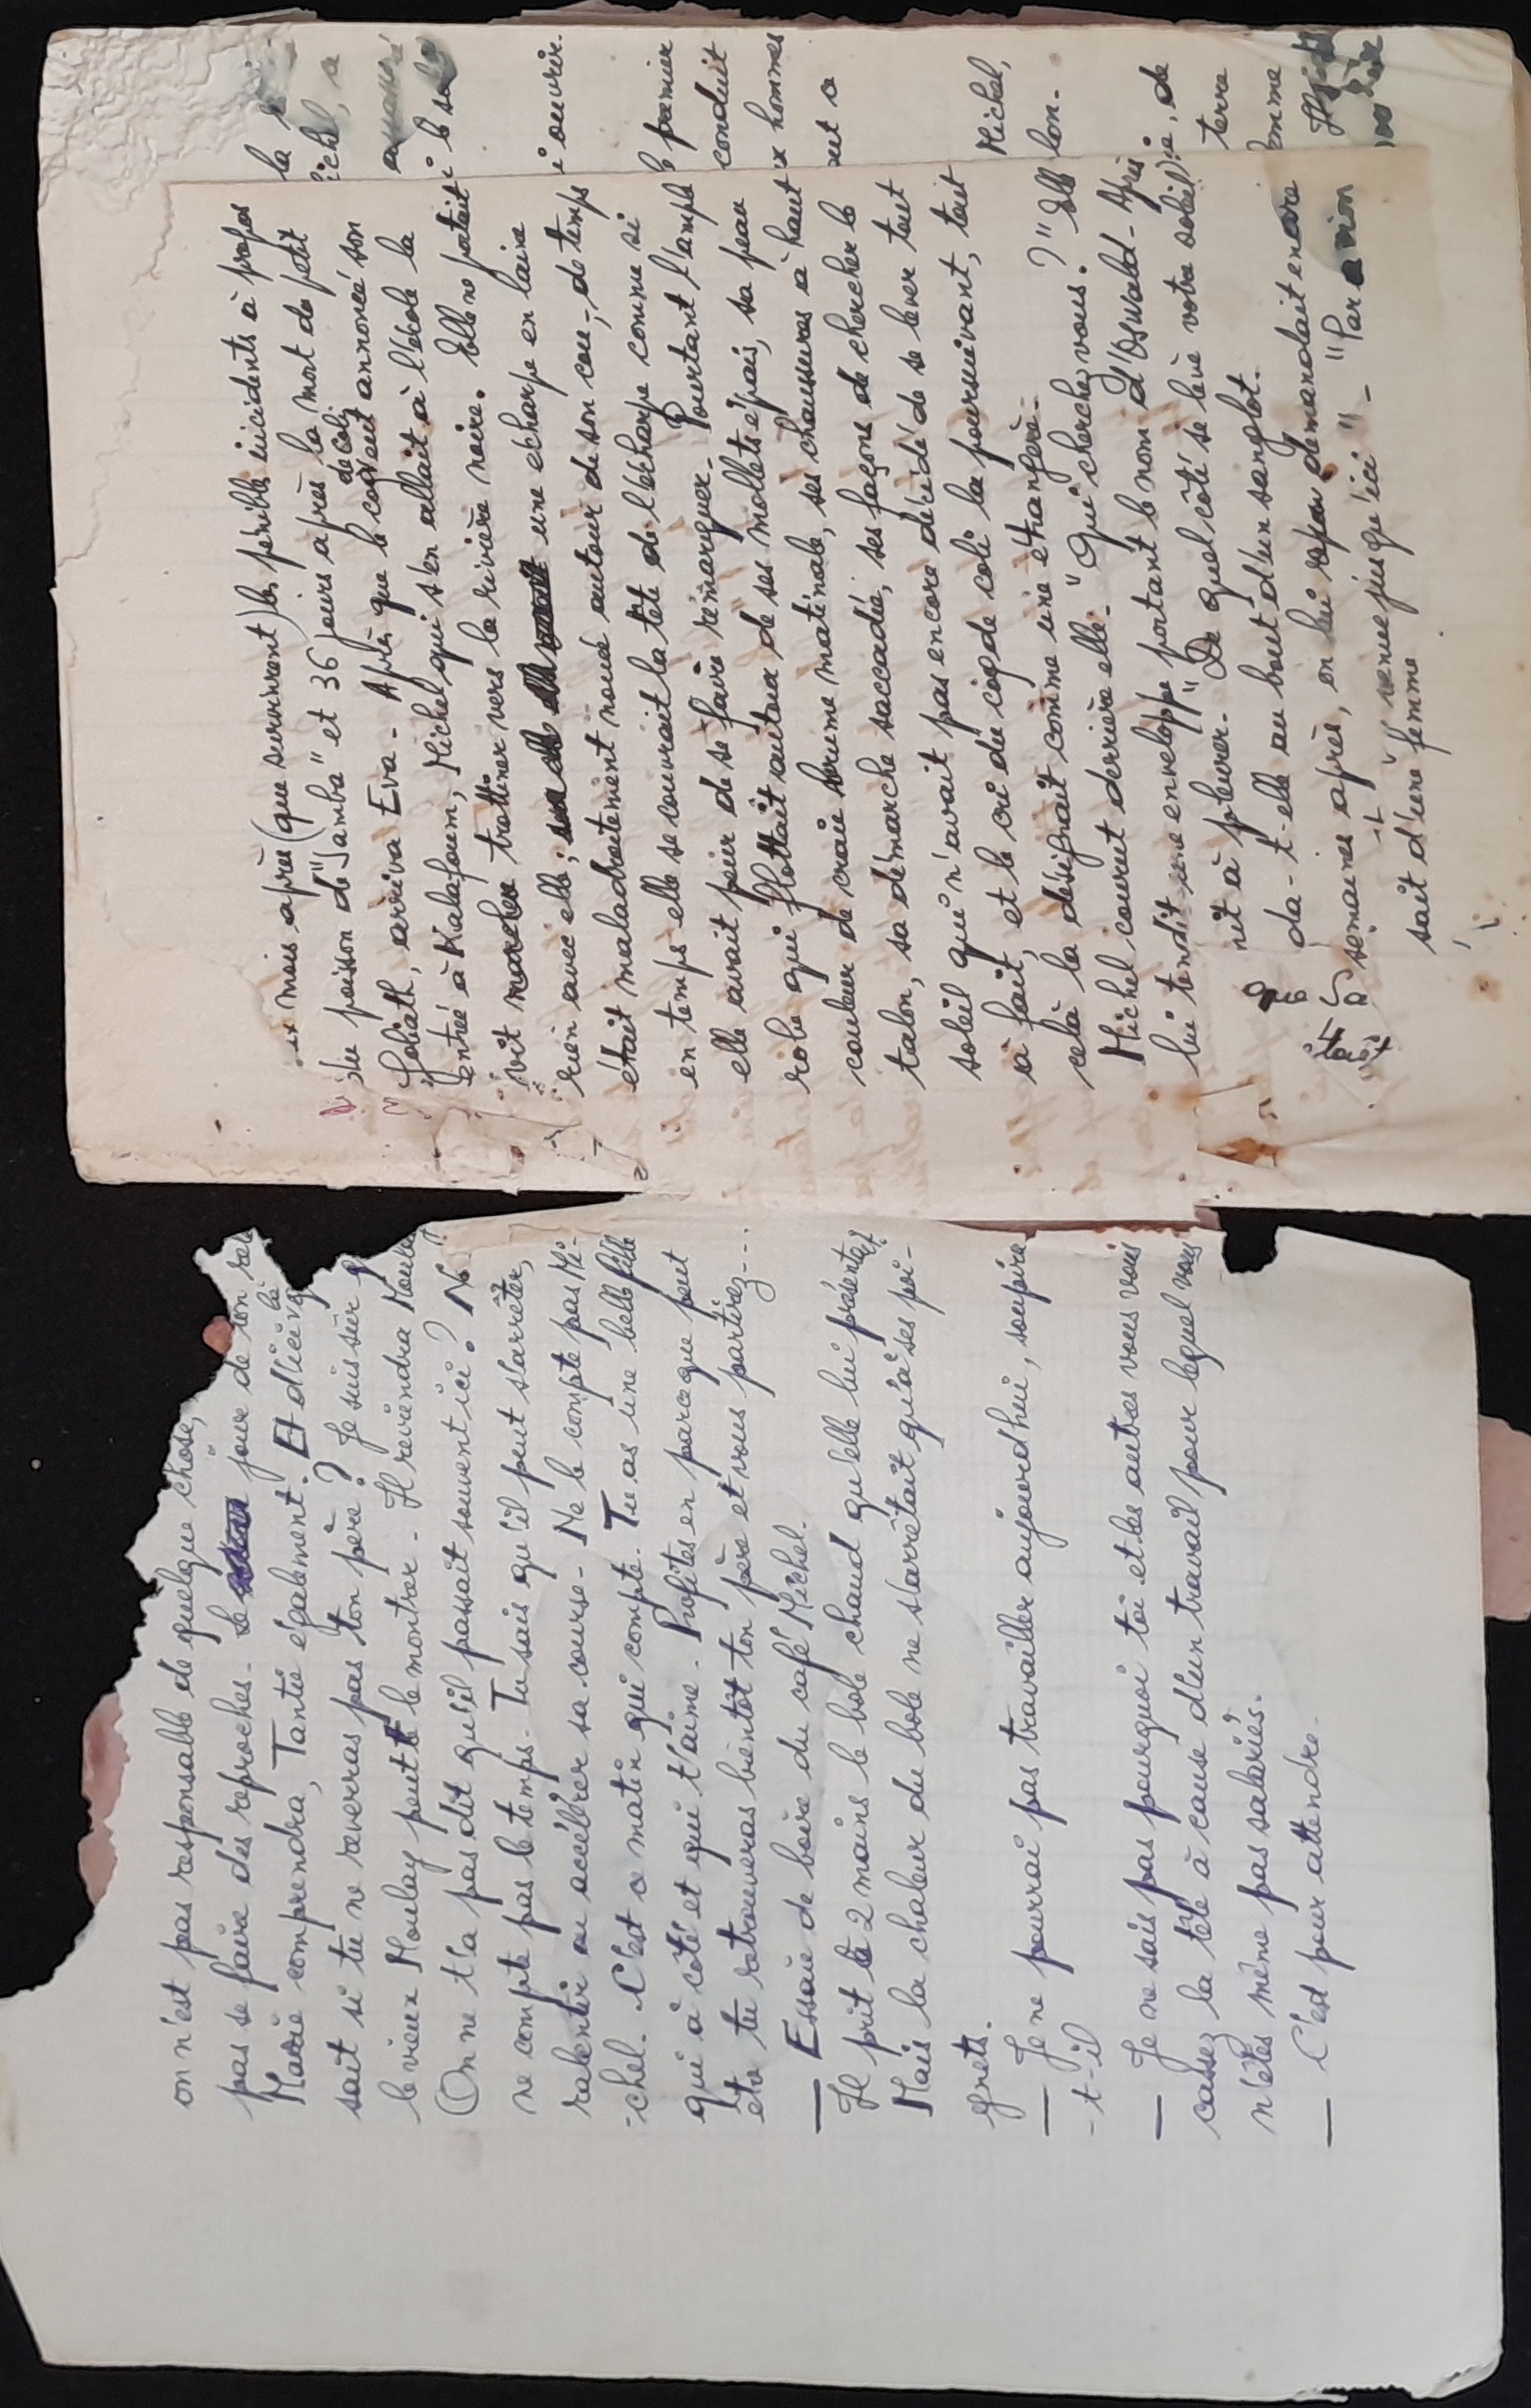 on n'est pas responsable de quelque chose,
pas se faire des reproches. Le jour de son
Marie comprendra, Tantie également. Et
sait si tu ne reverras pas ton père ? Je suis sûr
le vieux Moulay peut te le montrer. Il reviendra
On ne t'a pas dit qu'il passait souvent ici ?
ne compte pas le temps. Tu sais qu'il peut s'arrêter,
ralentir ou accélérer sa course. Ne le compte pas Mi-
-chel. C'est ce matin qui compte. Tu as une belle fille
qui à côté et qui t'aime. Profites en parceque peut
etr tu retrouveras bientôt ton père et vous partirez...
— Essaie de boire du café Michel.
Il prit les 2 mains le bole chaud qu'elle lui présentait
Mais la chaleur du bole ne s'arrêtait qu'à ses poi-
gnets.
— Je ne pourrai pas travailler aujourd'hui, soupira
-t-il
— Je ne sais pas pourquoi toi et les autres vous vous
cassez la tête à cause d'un travail pour lequel vous
n'êtes même pas salariés.
— C'est pour attendre.
mois après (que survinrent) les pénibles incidents à propos
du poisson de "Jamba" et 36 jours après la mort de petit
Goliath, arriva Eva. Après que le coq de Coli eut annoncé son
entrée à Kalafoum, Michel qui s'en allait à l'école la
vit trottiner vers la rivière noire. Elle ne portait
rien avec elle; une écharpe en laine
était maladroitement noué autour de son cou; de temps
en temps elle se couvrait la tête de l'écharpe comme si
elle avait peur de se faire remarquer. Pourtant l'ample
robe qui flottait autour de ses mollets épais, sa peau
couleur de craie brume matinale, ses chaussures à haut
talon, sa démarche saccadée, ses façons de chercher le
soleil qui n'avait pas encore décidé de se lever tout
à fait, et le cri du coq de coli la poursuivant, tout
cela la désignait comme une étrangère.
Michel courut derrière elle. "Qui cherchez vous ?" Elle
lui tendit une enveloppe portant le nom d'Oswald. Après
"De quel côté se lève votre soleil"
mit à pleurer.
da-t-elle au bout d'un sanglot.
semaines après, en lui demandait encore
venue jusqu'ici" - "Par avion
sait d'une femme
la
ouvrir.
le premier
conduit
hommes
Michel,
lon.
de
terre